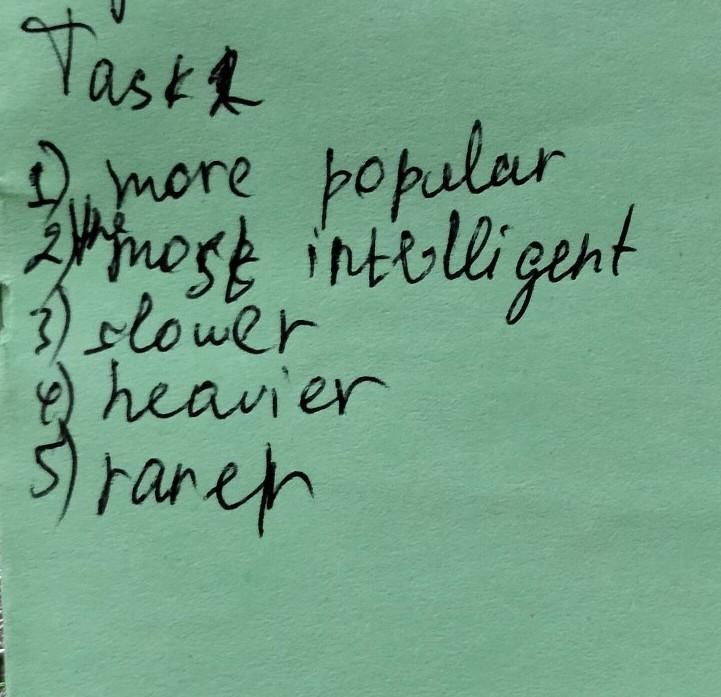 Task 1
1) more popular
2) the most intelligent
3) slower
4) heavier
5) rarer